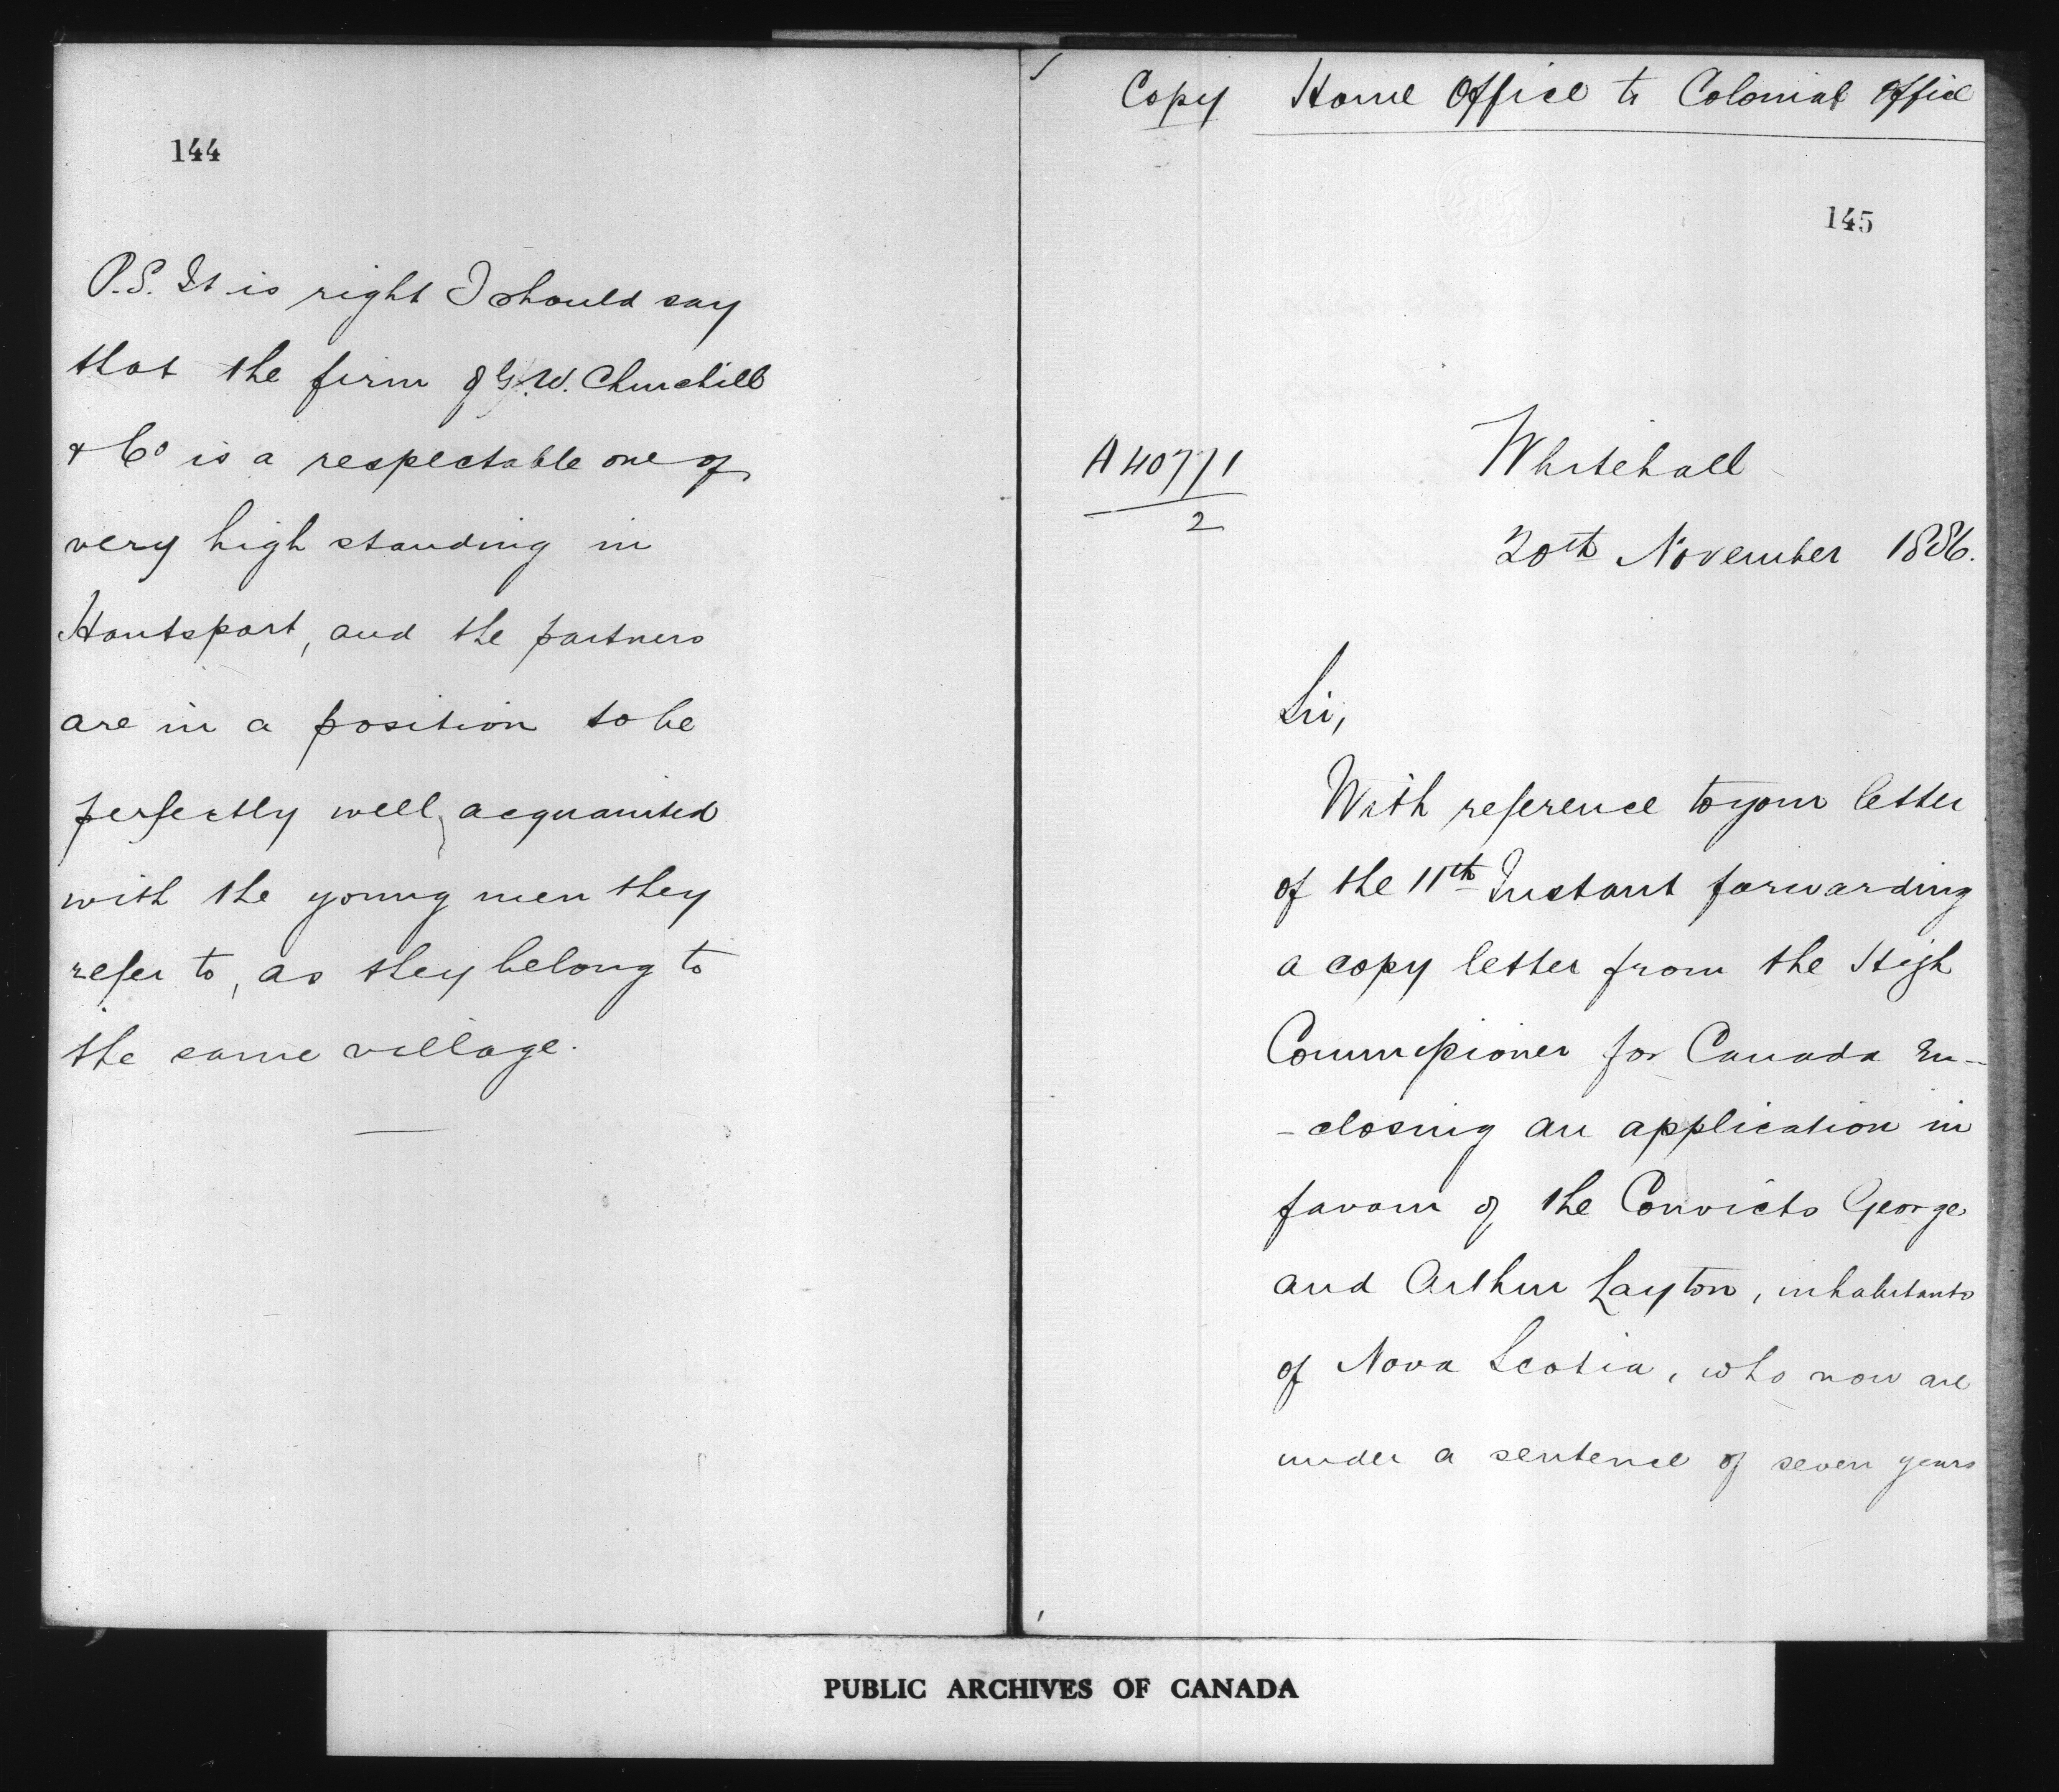 144
P.S. It is right I should say
that the firm of G. W. Churchill
& Co is a respectable one of
very high standing in
Hantsport, and the partners
are in a position to be
perfectly well acquainted
with the young men they
refer to, as they belong to
the same village.
Copy Home Office to Colonial Office
145
A 40771
2
Whitehall
20th November 1886.
Sir,
With reference to your letter
of the 11th Instant forwarding
a copy letter from the High
Commissioner for Canada En-
- closing an application in
favour of the Convicts George
and Arthur Layton, inhabitants
of Nova Scotia, who now are
under a sentence of seven years
PUBLIC ARCHIVES OF CANADA